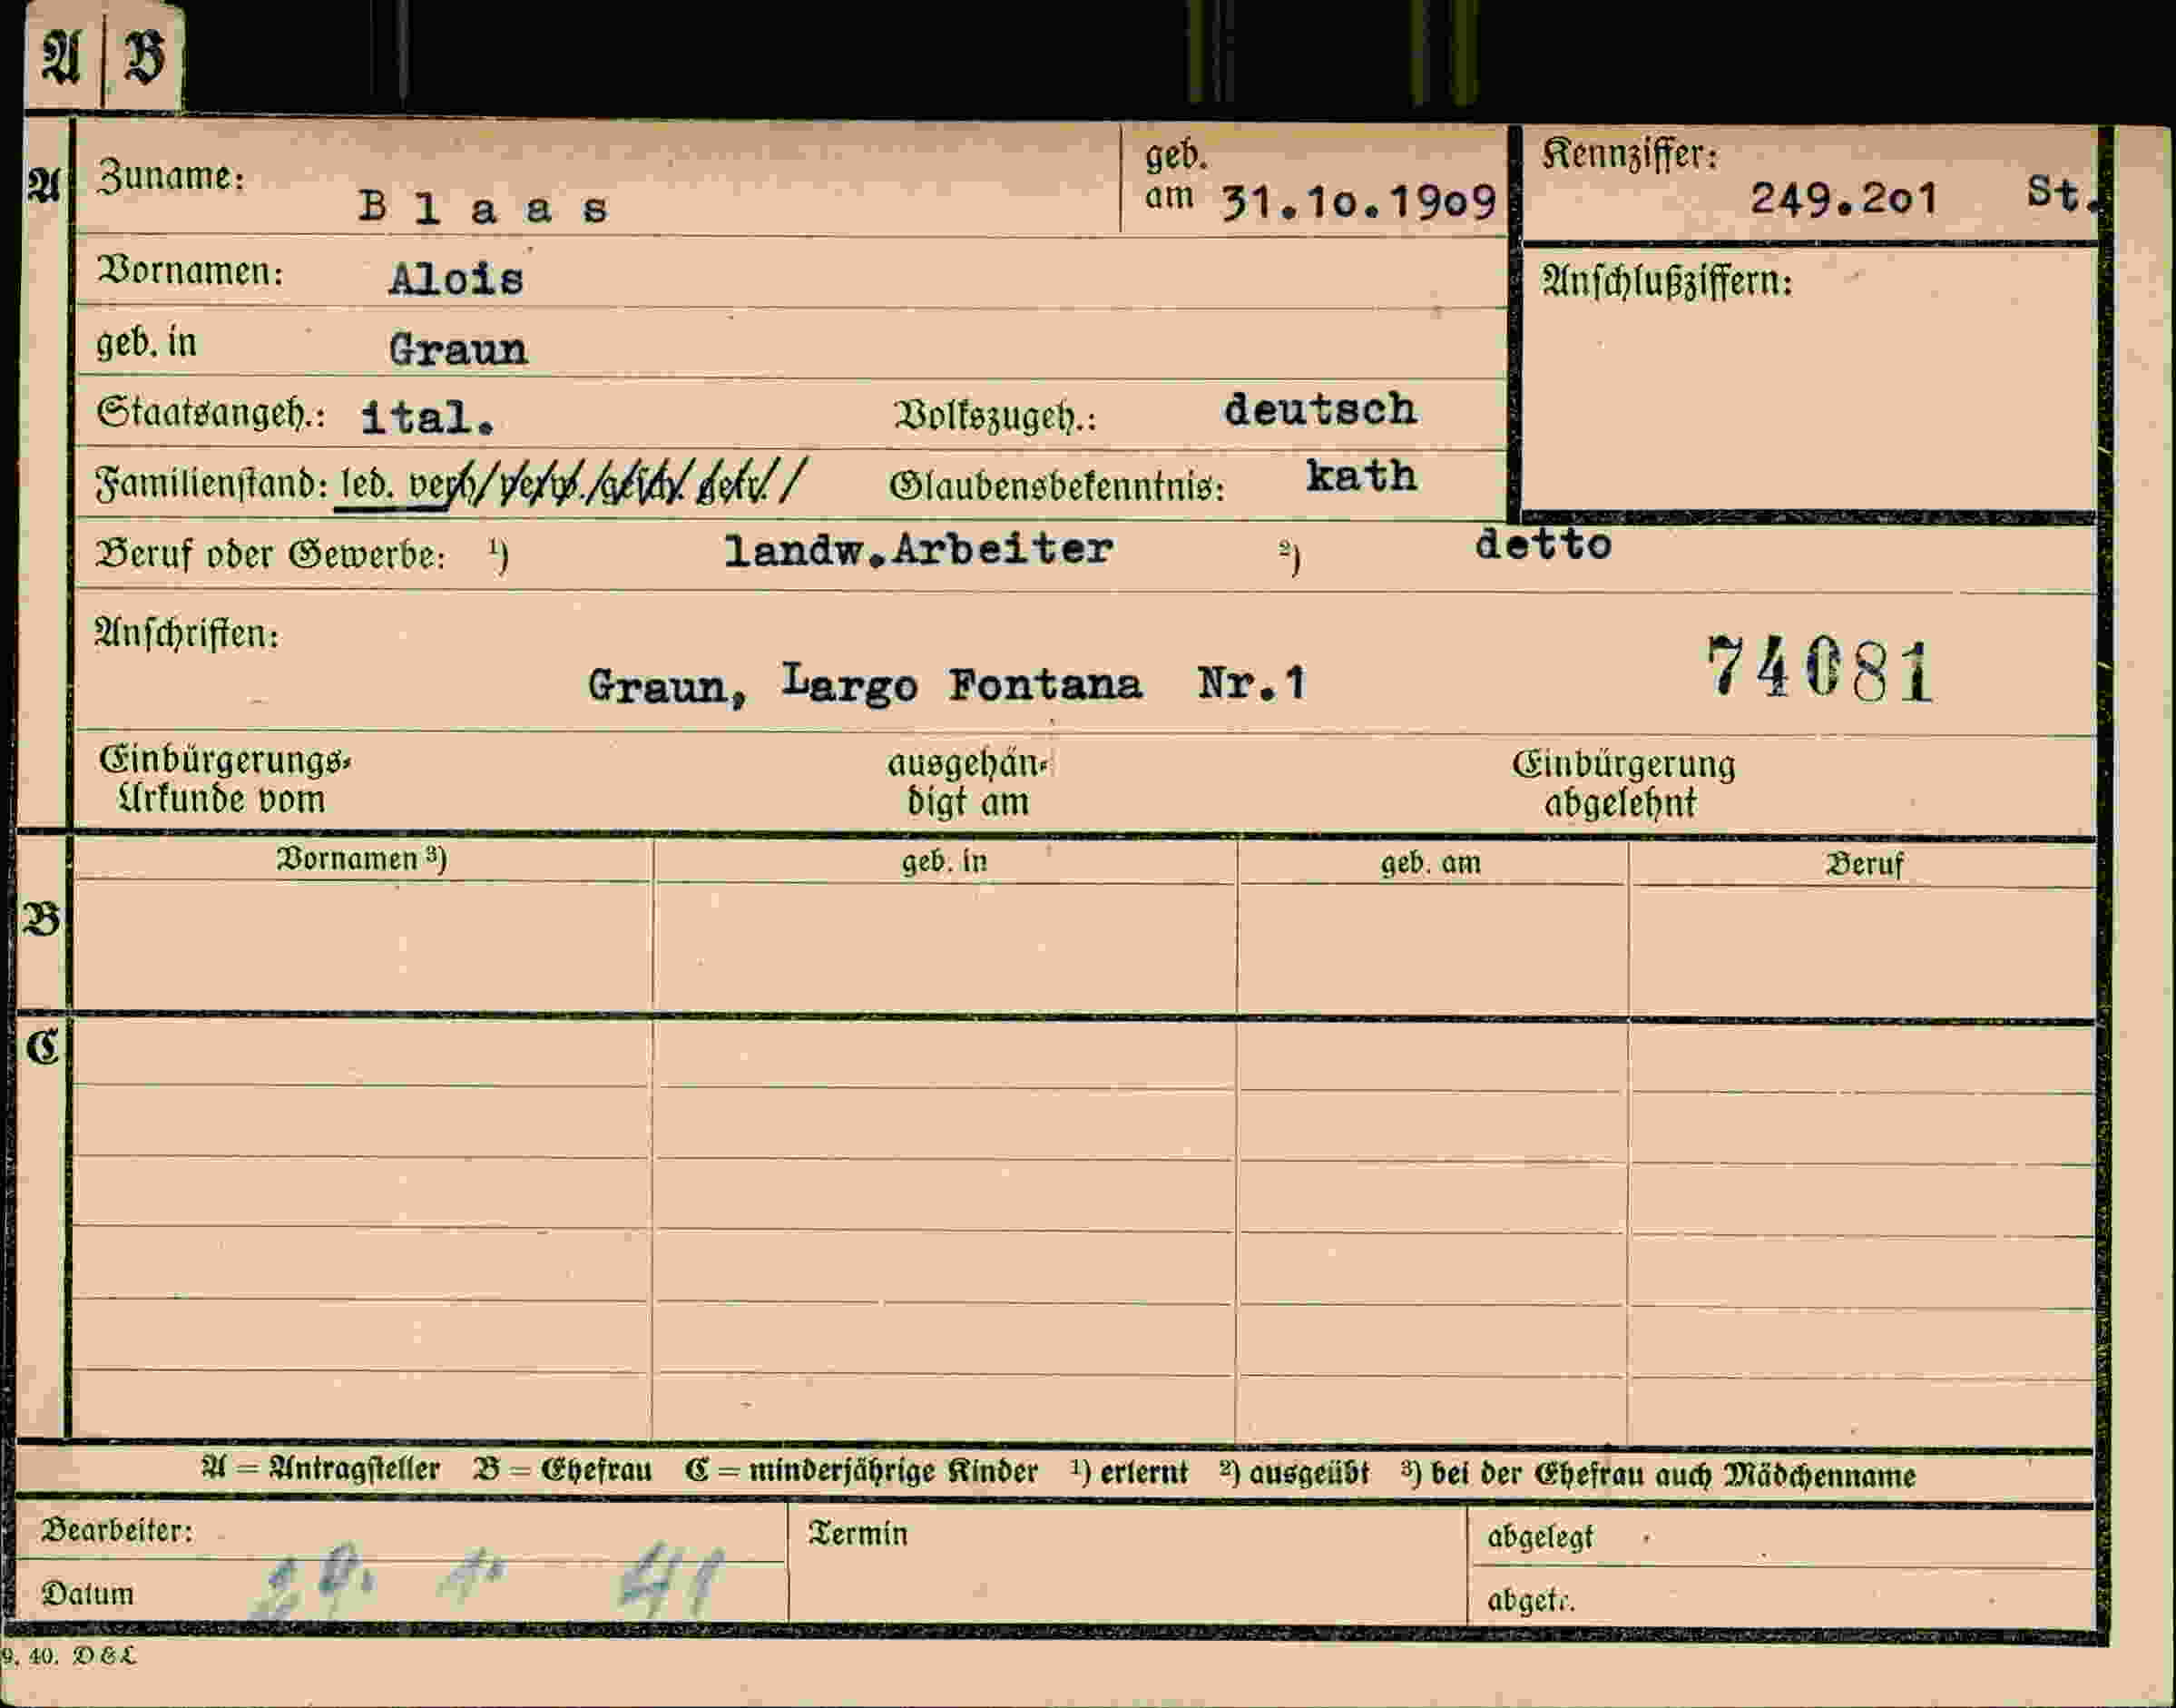 A B
A Zuname: Blaas geb. am 31.10.1909 Kennziffer: 249.201 St.
Vornamen: Alois Anschlußziffern:
geb. in Graun
Staatsangeh.: ital. Volkszugeh.: deutsch
Familienstand: led. verh. verw. gesch. getr. Glaubensbekenntnis: kath
Beruf oder Gewerbe: ¹) landw.Arbeiter ²) detto
Anschriften:
Graun, Largo Fontana Nr.1 74081
Einbürgerungs- ausgehän- Einbürgerung
Urkunde vom digt am abgelehnt
Vornamen ³) geb. in geb. am Beruf
B
C
A = Antragsteller B = Ehefrau C = minderjährige Kinder ¹) erlernt ²) ausgeübt ³) bei der Ehefrau auch Mädchenname
Bearbeiter: Termin abgelegt
Datum 41 abgetr.
9. 40. D & L